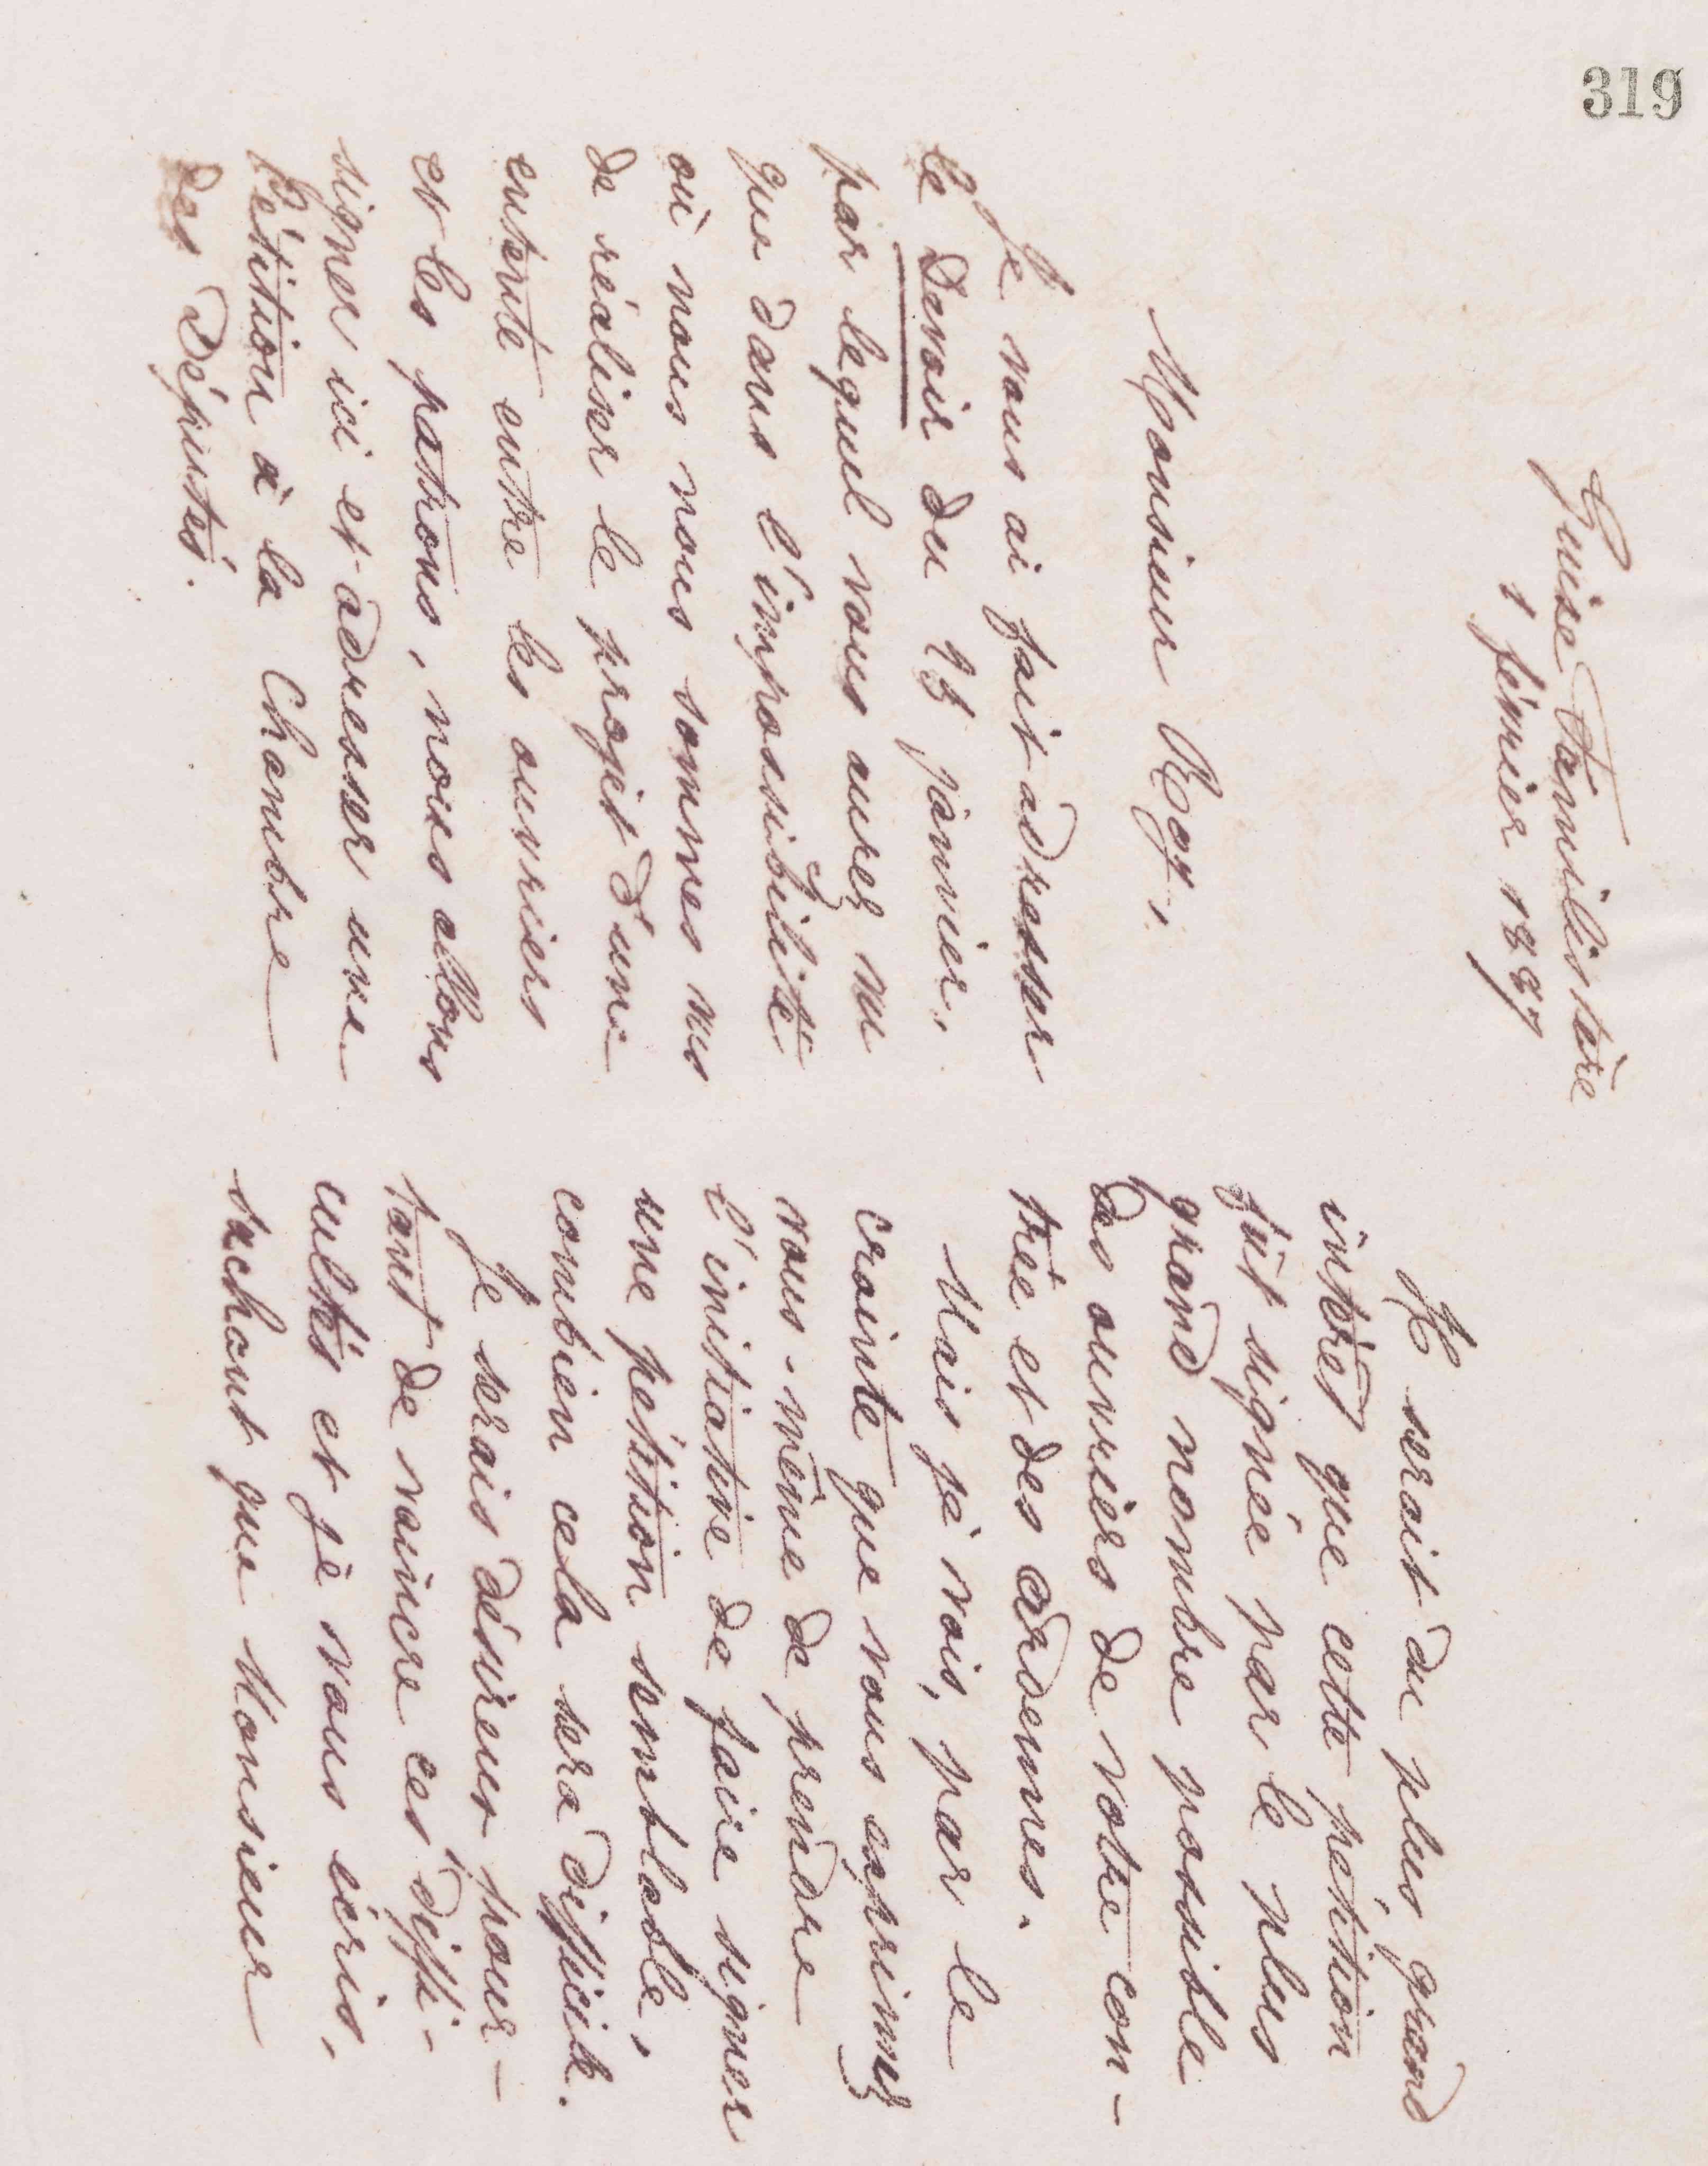 319
Guise Familistère
1 février 1887
Monsieur Roy,
Je vous ai fait adresser
le Devoir du 23 janvier,
par lequel vous aurez vu
que dans l'impossibilité
où nous nous sommes vus
de réaliser le projet d'une
entente entre les ouvriers
et les patrons, nous allons
signer ici et adresser une
Pétition à la Chambre
des Députés.
Il serait du plus grand
intérêt que cette pétition
fût signée par le plus
grand nombre possible
des ouvriers de votre con-
trée et des Ardennes.
Mais je vois, par la
crainte que vous exprimez
vous-même de prendre
l'initiative de faire signer
une pétition semblable,
combien cela sera difficile.
Je serais désireux pour-
tant de vaincre ces diffi-
cultés et je vous écris,
sachant que Monsieur